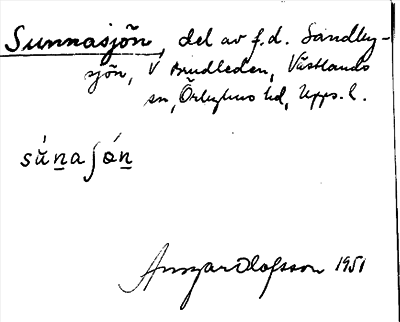 Sunnasjön, del av f.d. Sandby-
sjön, V Brudleden, Västlands
sn, Örbyhus hd, Upps. l.
sún̲aʃón̲
Ansgar Olofsson 1951